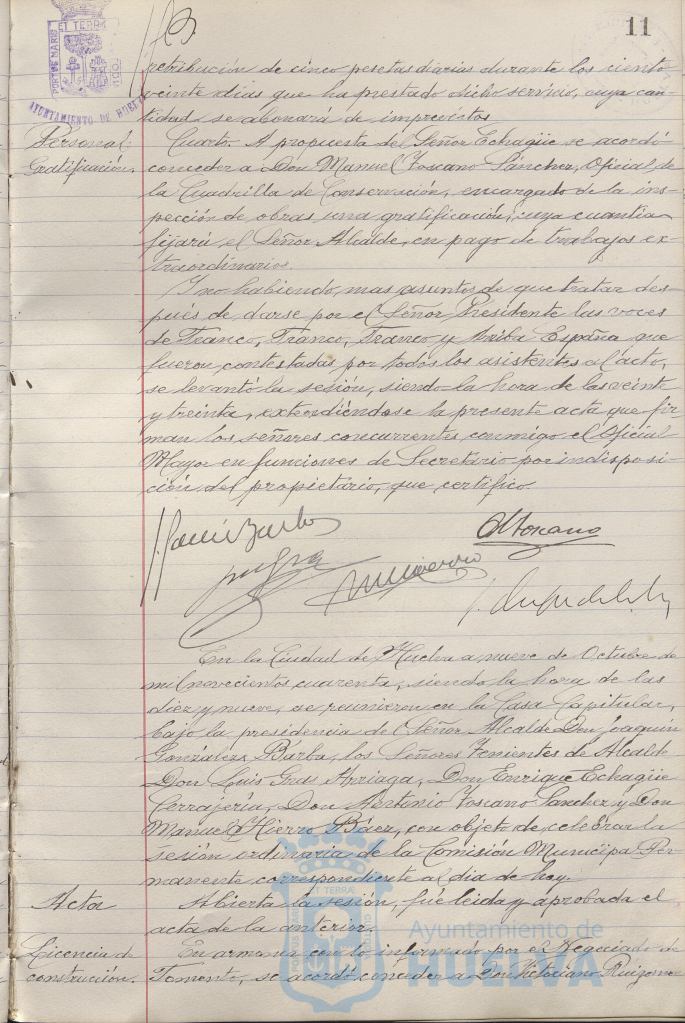 11
PORTUS MARIS ET TERRAE
AYUNTAMIENTO DE HUELVA
retribución de cinco pesetas diarias durante los ciento
veinte dias que ha prestado dicho servicio, cuya can-
tidad se abonará de imprevistos.
Personal. Cuarto. A propuesta del Señor Echagüe se acordó
Gratificación. conceder a Don Manuel Toscano Sánchez, Oficial de
la Cuadrilla de Conservación, encargado de la ins-
pección de obras una gratificación, cuya cuantia
fijará el Señor Alcalde, en pago de trabajos ex-
traordinarios.
Y no habiendo mas asuntos de que tratar des-
pués de darse por el Señor Presidente las voces
de Franco, Franco, Franco y Arriba España que
fueron contestadas por todos los asistentes al acto,
se levantó la sesión, siendo la hora de las veinte
y treinta, extendiéndose la presente acta que fir-
man los señores concurrentes conmigo el Oficial
Mayor en funciones de Secretario por indisposi-
ción del propietario, que certifico.
En la Ciudad de Huelva a nueve de Octubre de
mil novecientos cuarenta, siendo la hora de las
diez y nueve, se reunieron en la Casa Capitular,
bajo la presidencia del Señor Alcalde Don Joaquin
González Barba, los Señores Tenientes de Alcalde
Don Luis Gras Arriaga, Don Enrique Echagüe
Cerrajería, Don Antonio Toscano Sánchez y Don
Manuel Hierro Báez, con objeto de celebrar la
sesión ordinaria de la Comisión Municipal Per-
manente correspondiente al dia de hoy.
Acta Abierta la sesión, fué leida y aprobada el
acta de la anterior.
Licencia de En armonia con lo informado por el Negociado de
construcción. Fomento, se acordó conceder a Don Victoriano Ruiz
Ayuntamiento de
HUELVA